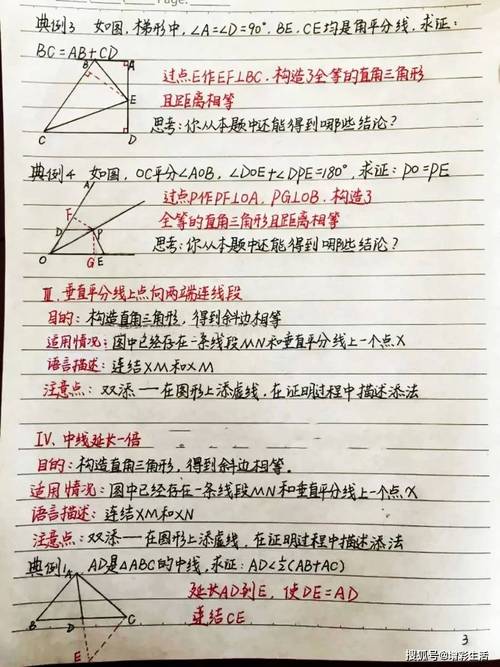 典例3 如图,梯形中,∠A=∠D=90°,BE、CE均是角平分线,求证:
BC=AB+CD
过点E作EF⊥BC,构造了全等的直角三角形
且距离相等
思考:你从本题中还能得到哪些结论?
B A
E
C D
典例4 如图,OC平分∠AOB,∠DOE+∠DPE=180°,求证:PD=PE
过点P作PF⊥OA,PG⊥OB,构造了
全等的直角三角形且距离相等
思考:你从本题中还能得到哪些结论?
A
F
D P
O G E
Ⅲ、垂直平分线上点向两端连线段
目的:构造直角三角形,得到斜边相等
适用情况:图中已经存在一条线段MN和垂直平分线上一个点X
语言描述:连结XM和XM
注意点:双添——在图形上添虚线,在证明过程中描述添法
Ⅳ、中线延长一倍
目的:构造直角三角形,得到斜边相等。
适用情况:图中已经存在一条线段MN和垂直平分线上一个点X
语言描述:连结XM和XN
注意点:双添——在图形上添虚线,在证明过程中描述添法
典例1 AD是△ABC的中线,求证:AD<½(AB+AC)
延长AD到E,使DE=AD
连结CE
A
B D C
E
3
搜狐号@增彩生活